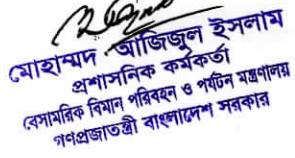 মোহাম্মদ আজিজুল ইসলাম
প্রশাসনিক কর্মকর্তা
বেসামরিক বিমান পরিবহন ও পর্যটন মন্ত্রণালয়
গণপ্রজাতন্ত্রী বাংলাদেশ সরকার